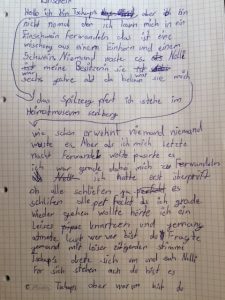 Einschwein
Hallo ich bin Tschups aber ich bin
nicht normal den ich kann mich in ein
Einschwein ferwandeln das ist eine
mischung aus einem Einhorn und einem
Schwein Niemand waste es
mit meine Besitzerin sie
war sechs Jahre alt da bekam sie mich
das Spilzeug pfert ich stehe im
Heimatmuseum
wie schon erwehnt niemand niemand
waste es. Aber als ich mich letzte
nacht ferwandeln wolte pasirte es
ich war gerade dabei mich zu ferwandeln
ich hatte erst überprüft
ob alle schliefen ja es
schlifen alle perfeckt da ich grade
wieder gehen wollte hörte ich ein
leises knartzen und jemand
atmete laut wer bist du Fragte
jemand mit leiser zitternder stimme
Tschups drete sich um und sah Nulli
for sich stehen ach du bist es
Tschups aber warum bist du